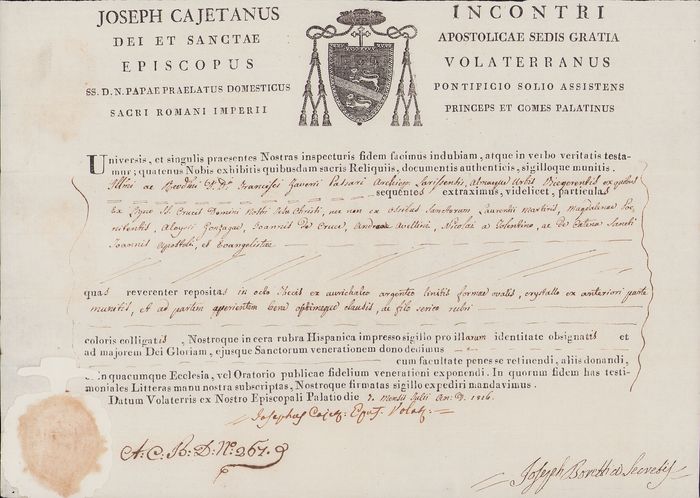 JOSEPH CAJETANUS INCONTRI
DEI ET SANCTAE APOSTOLICAE SEDIS GRATIA
EPISCOPUS VOLATERRANUS
SS. D. N. PAPAE PRAELATUS DOMESTICUS PONTIFICIO SOLIO ASSISTENS
SACRI ROMANI IMPERII PRINCEPS ET COMES PALATINUS
Universis, et singulis praesentes Nostras inspecturis fidem facimus indubiam, atque in verbo veritatis testa-
mur; quatenus Nobis exhibitis quibusdam sacris Reliquiis, documentis authenticis, sigilloque munitis.
Illmi ac Francisci Xaverii Passari Larissensis, Almaeque Urbis ex quibus
sequentes extraximus, videlicet, particulas
Ex Lyno SS. Crucis Domini Nostri Jesu Christi, nec non ex ossibus Sanctorum Laurentii Martiris, Magdalenae Poe-
nitentis, Aloysii Gonzagae, Joannis De Cruce, Andreae Avellini, Nicolai a Tolentino, ac De Catena Sancti
Joannis Apostoli, et Evangelistae
quas reverenter repositas in octo thecis ex aurichalco argenteo linitis formae ovalis, crystallo ex anteriori parte
munitis, et ad partem aperientem bene optimeque clausis, ac filo serico rubri
coloris colligatis, Nostroque in cera rubra Hispanica impresso sigillo pro illarum identitate obsignatis et
ad majorem Dei Gloriam, ejusque Sanctorum venerationem dono dedimus
cum facultate penes se retinendi, aliis donandi,
in quacumque Ecclesia, vel Oratorio publicae fidelium venerationi exponendi. In quorum fidem has testi-
moniales Litteras manu nostra subscriptas, Nostroque firmatas sigillo expediri mandavimus.
Datum Volaterris ex Nostro Episcopali Palatio die 7. Mensis Julii An: D. 1816.
Josephus Cajet: Epus. Volat:
A. C. R. D. N.º 267.
Joseph Secretis